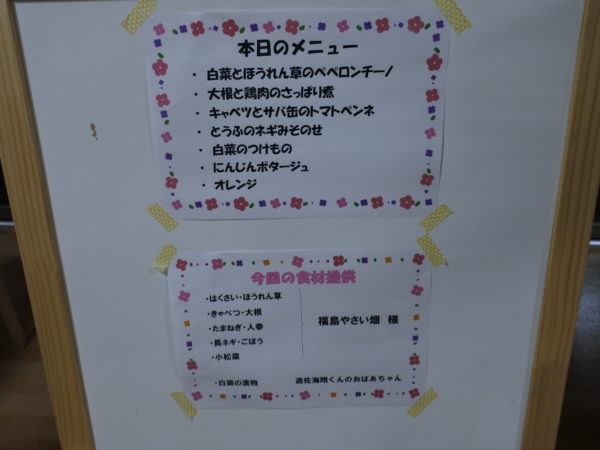 本日のメニュー
・ 白菜とほうれん草のペペロンチーノ
・ 大根と鶏肉のさっぱり煮
・ キャベツとサバ缶のトマトペンネ
・ とうふのネギみそのせ
・ 白菜のつけもの
・ にんじんポタージュ
・ オレンジ
今回の食材提供
・はくさい・ほうれん草
・きゃべつ・大根
・たまねぎ・人参
・長ネギ・ごぼう
・小松菜
福島やさい畑 様
・白菜の漬物 遊佐海翔くんのおばあちゃん